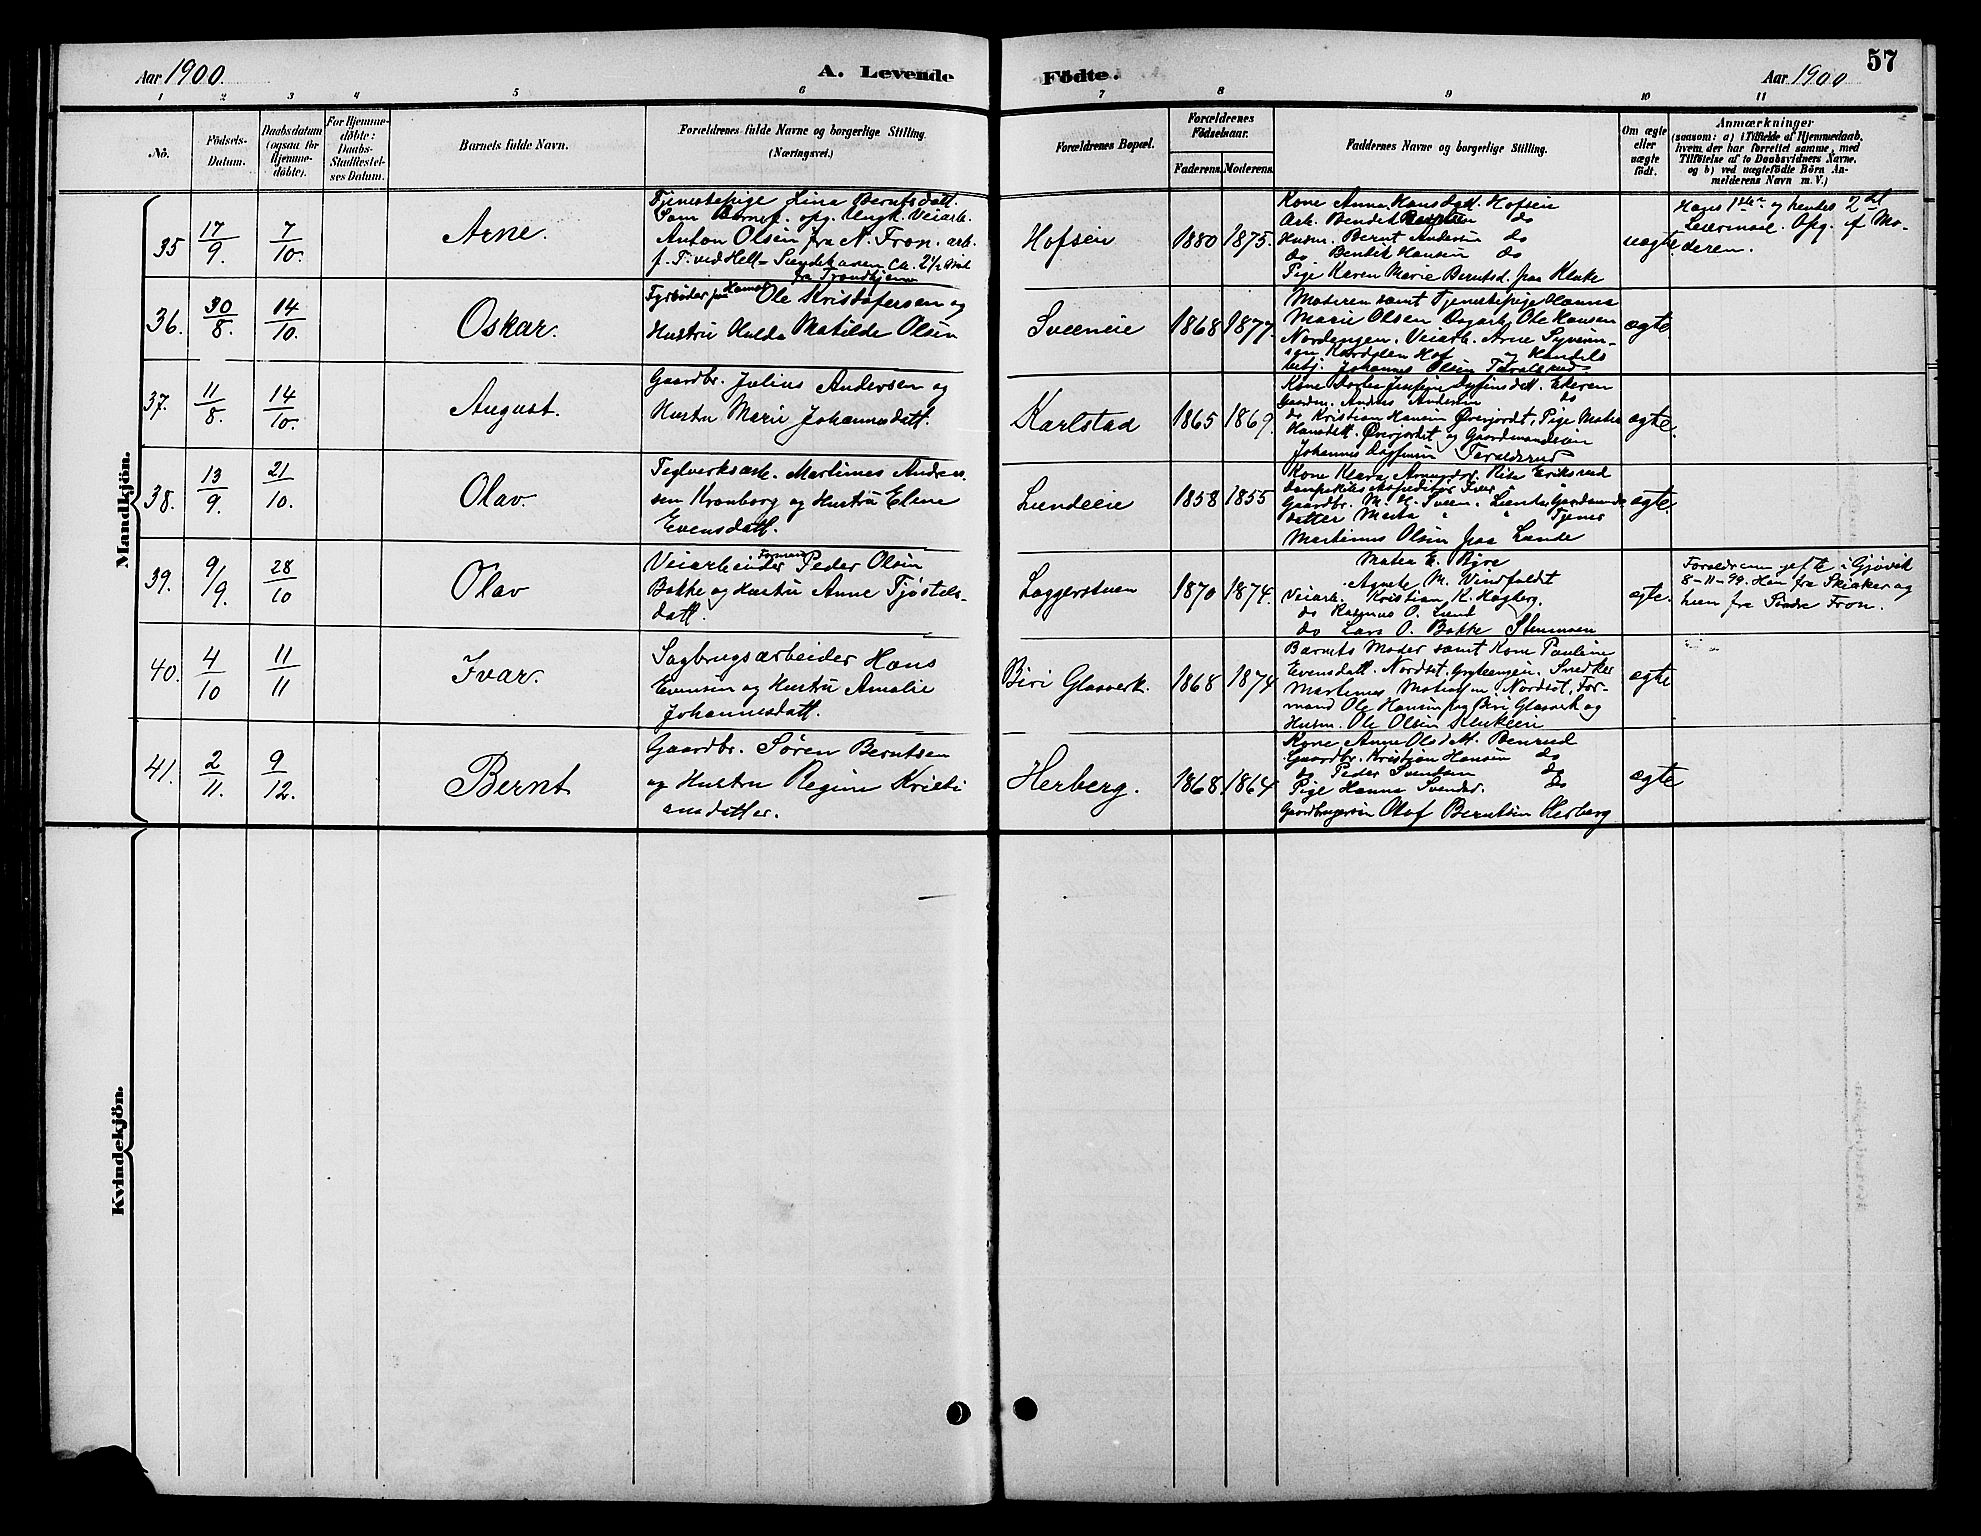 Aar 1900.
A. Levende
Födte.
Aar 1900
57
1 2 3 4 5 6 7 8 9 10 11
No.
Födsels-
Datum.
Daabsdatum
(ogsaa for
Hjemme-
döbte).
For Hjemme-
döbte:
Daabs-
Stadfæstel-
ses Datum.
Barnets fulde Navn.
Forældrenes fulde Navne og borgerlige Stilling.
(Næringsvei.)
Forældrenes Bopæl.
Forældrenes
Födselsaar.
Faderens. Moderens.
Faddernes Navne og borgerlige Stilling.
Om ægte
eller
uægte
födt.
Anmærkninger
(saasom: a) i Tilfælde af Hjemmedaab,
hvem der har forrettet samme, med
Tilföielse af to Daabsvidners Navne,
og b) ved uægtefödte Börn An-
melderens Navn m. V.)
Mandkjön.
35 17/9. 7/10. Arne.
Tjenestepige Lina Berntsdatt.
Som Barnef. opg. Ungk. Veiarb.
Anton Olsen fra N. Fron. arb.
f. T. ved Hell-Sundehavn Ca. 2 1/2 Mil
fra Trondhjem
Hofseie 1880 1875.
Kone Anna Hansdatt. Hofseie
Arb. Bendik do
Husm. Bernt Andersen do
do Bendik Hansen do
Pige Karen Marie Berntsd. paa Kluke
uægte.
Hans 1ste og hendes 2det
Leiermaal. Opg. af Mo-
deren.
36. 30/8. 14/10. Oskar.
Fyrbøder paa Hamar Ole Kristofersen og
Hustru Hulda Matilde Olsen
Sveeneie 1868 1877.
Moderen samt Tjenestepige Hanna
Marie Olsen Dagarb. Ole Hansen
Nordengen. Veiarb. Arne Syvers-
sen Hof og Handels
betj. Johannes Olsen Taralsrud
ægte.
37. 11/8 14/10. August.
Gaardbr. Julius Andersen og
Hustru Marie Johannesdatt.
Karlstad 1865 1869.
Kone Agte Josefine Dagfinsdatt. Ekeren
Gaardm. Andreas Andersen do
do Kristian Hansen Øverjordet, Pige Mathea
Hansdatt. Øverjordet og Gaardmandssøn
Johannes Dagfinsen Taralsrud
ægte.
38. 13/9. 21/10. Olav.
Teglverksarb. Martinus Anders
sen Kronborg og Hustru Elene
Evensdatt.
Lundeeie 1858 1855
Kone Klara Eriksrud
Dampskibsekspeditør Iver
Gaardbr. M. O. Sveen. Lunde, Gaardmands
datter Marta " Tjener
Martinus Olsen paa Lunde
ægte.
39. 9/9. 28/10 Olav
Veiarbeider Formand Peder Olsen
Bakke og Hustru Anne Tjøstels-
datt.
Laggerstuen 1870 1874.
Matea E. Byre
Agnete M. Vindfaldt
Veiarb. Kristian K. Høgberg.
do Rasmus O. Lund
do Lars O. Bakke Stumoen
ægte.
Forældrene gift i Gjøvik
8-11-99. Han fra Skiaker og
hun fra Søndre Fron.
40. 4/10 11/11 Ivar.
Sagbrugsarbeider Hans
Evensen og Hustru Amalie
Johannesdatt.
Biri Glasverk. 1868 1874
Barnets Moder samt Kone Pauline
Evensdatt. Nordset, Snedker
Martinus Nordset, For-
mand Ole Hansen paa Biri Glasverk og
Husm. Ole Olsen Klukeeie
ægte
41. 2/11. 9/12. Bernt
Gaardbr. Søren Berntsen
og Hustru Regine Kristi
ansdatter.
Herberg. 1868 1864
Kone Anne Olsdatt. Benrud
Gaardbr. Kristian Hansen do
do Peder Svendsen do
Pige Hanna Svendsd. do
Gaardbrugersøn Olaf Berntsen Herberg
ægte
Kvindekjön.